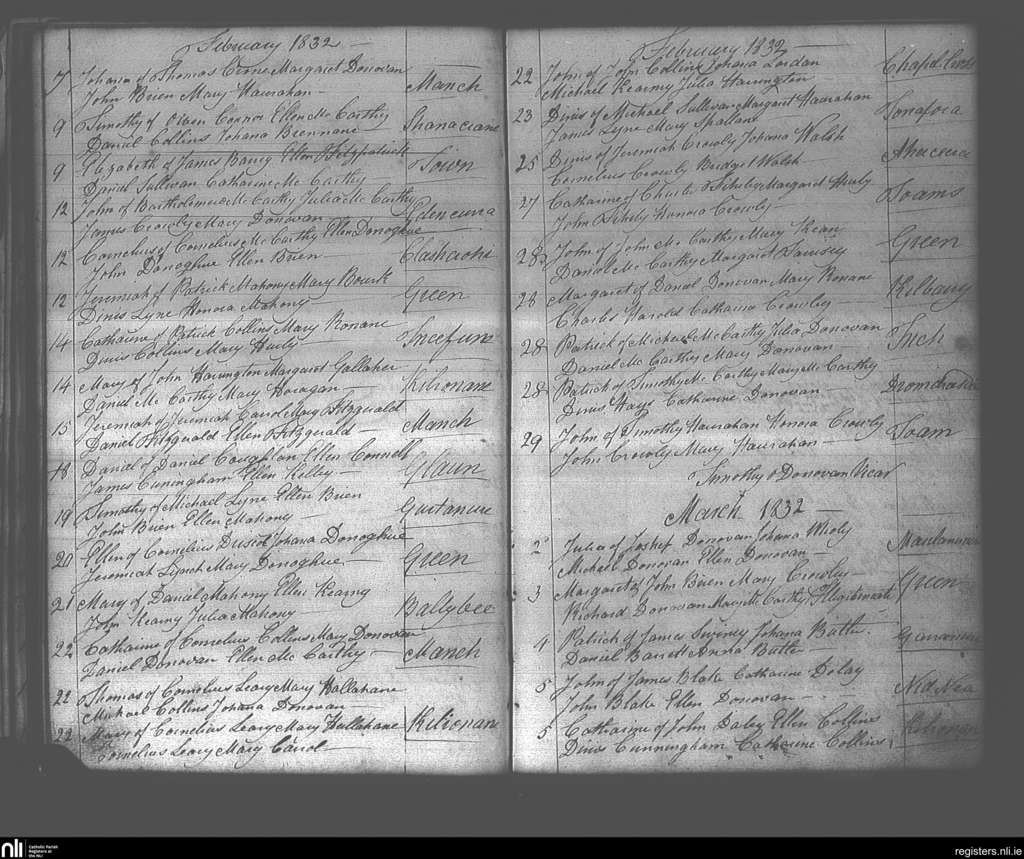 February 1832
7 Johana of Thomas Crone Margaret Donovan
John Brien Mary Haurahan Manch
9 Timothy of Owen Connor Ellen Mc Carthy
Daniel Collins Johana Brennane Shanacrane
9 Elizabeth of James Barry Ellen Fitzpatrick
Daniel Sullivan Catharine Mc Carthy Town
12 John of Bartholomew Mc Carthy Julia Mc Carthy
James Crowly Mary Donovan Edencurra
12 Cornelius of Cornelius Mc Carthy Ellen Donoghue
John Donoghue Ellen Brien
12 Jeremiah of Patrick Mahony Mary Bourk
Denis Lyne Honora Mahony Green
14 Catharine of Patrick Collins Mary Ronane
Denis Collins Mary Hurly
14 Mary of John Harrington Margaret Gallaher
Daniel Mc Carthy Mary Horagan Kilronane
15 Jeremiah of Jeremiah Carrol Mary Fitzgerald
Daniel Fitzgerald Ellen Fitzgerald Manch
18 Daniel of Daniel Coughlan Ellen Connell
James Cuningham Ellen Kelley Glaun
19 Timothy of Michael Lyne Ellen Brien
John Brien Ellen Mahony
20 Ellen of Cornelius Driscol Johana Donoghue
Jeremiah Lynch Mary Donoghue Green
21 Mary of Daniel Mahony Ellen Kearny
John Kearny Julia Mahony
22 Catharine of Cornelius Collins Mary Donovan
Daniel Donovan Ellen Mc Carthy Manch
22 Thomas of Cornelius Leary Mary Hallahane
Michael Collins Johana Donovan
22 Mary of Cornelius Leary Mary Hallahane
Cornelius Leary Mary Carrol Kilronane
February 1832
22 John of John Collins Johana Lordan
Michael Kearny Julia Harrington
23 Denis of Michael Sullivan Margaret Haurahan
James Lyne Mary Spallane
25 Denis of Jeremiah Crowly Johana Walsh
Cornelius Crowly Bridget Walsh
27 Catharine of Charles Margaret Hurly
John Honora Crowly Toams
28 John of John Mc Carthy Mary Kean
Daniel Mc Carthy Margaret Green
28 Margaret of Daniel Donovan Mary Ronane
Charles Harold Catharine Crowley
28 Patrick of Michael Mc Carthy Julia Donovan
Daniel Mc Carthy Mary Donovan Inch
28 Patrick of Timothy Mc Carthy Mary Mc Carthy
Denis Hays Catharine Donovan
29 John of Timothy Haurahan Honora Crowly
John Crowly Mary Haurahan Toam
Timothy O Donovan Vicar
March 1832
2 Julia of Joshep Donovan Johana Wholy
Michael Donovan Ellen Donovan
3 Margaret of John Brien Mary Crowley
Richard Donovan Mary Mc Carthy Illegitimate Green
4 Patrick of James Sweeney Johana Butler
Daniel Barrett Anna Butler
5 John of James Blake Catharine Delay
John Blake Ellen Donovan
5 Catharine of John Daley Ellen Collins
Denis Cunningham Catharine Collins Kilronan
nli
Catholic Parish
Registers at
the NLI
registers.nli.ie